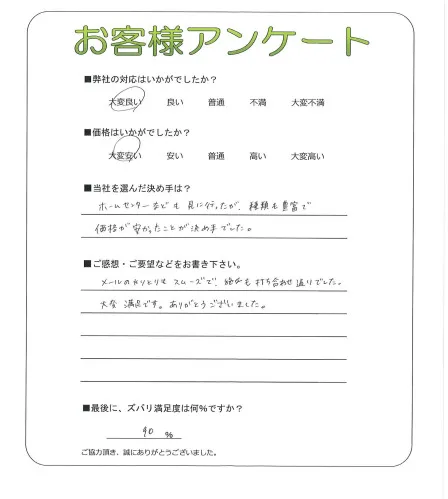 お客様アンケート
■弊社の対応はいかがでしたか？
大変良い 良い 普通 不満 大変不満
■価格はいかがでしたか？
大変安い 安い 普通 高い 大変高い
■当社を選んだ決め手は？
ホームセンターなども見に行ったが、種類も豊富で
価格が安かったことが決め手でした。
■ご感想・ご要望などをお書き下さい。
メールのやりとりもスムーズで、も打ち合わせ通りでした。
大変満足です。ありがとうございました。
■最後に、ズバリ満足度は何%ですか？
90 %
ご協力頂き、誠にありがとうございました。